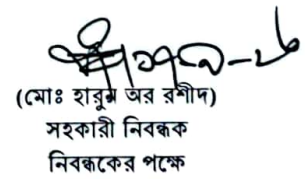 (মোঃ হারুন অর রশীদ)
সহকারী নিবন্ধক
নিবন্ধকের পক্ষে